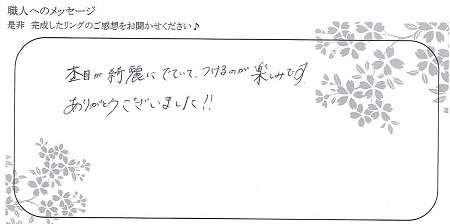 職人へのメッセージ
是非 完成したリングのご感想をお聞かせください♪
杢目が綺麗にでていて、つけるのが楽しみです
ありがとうございました!!